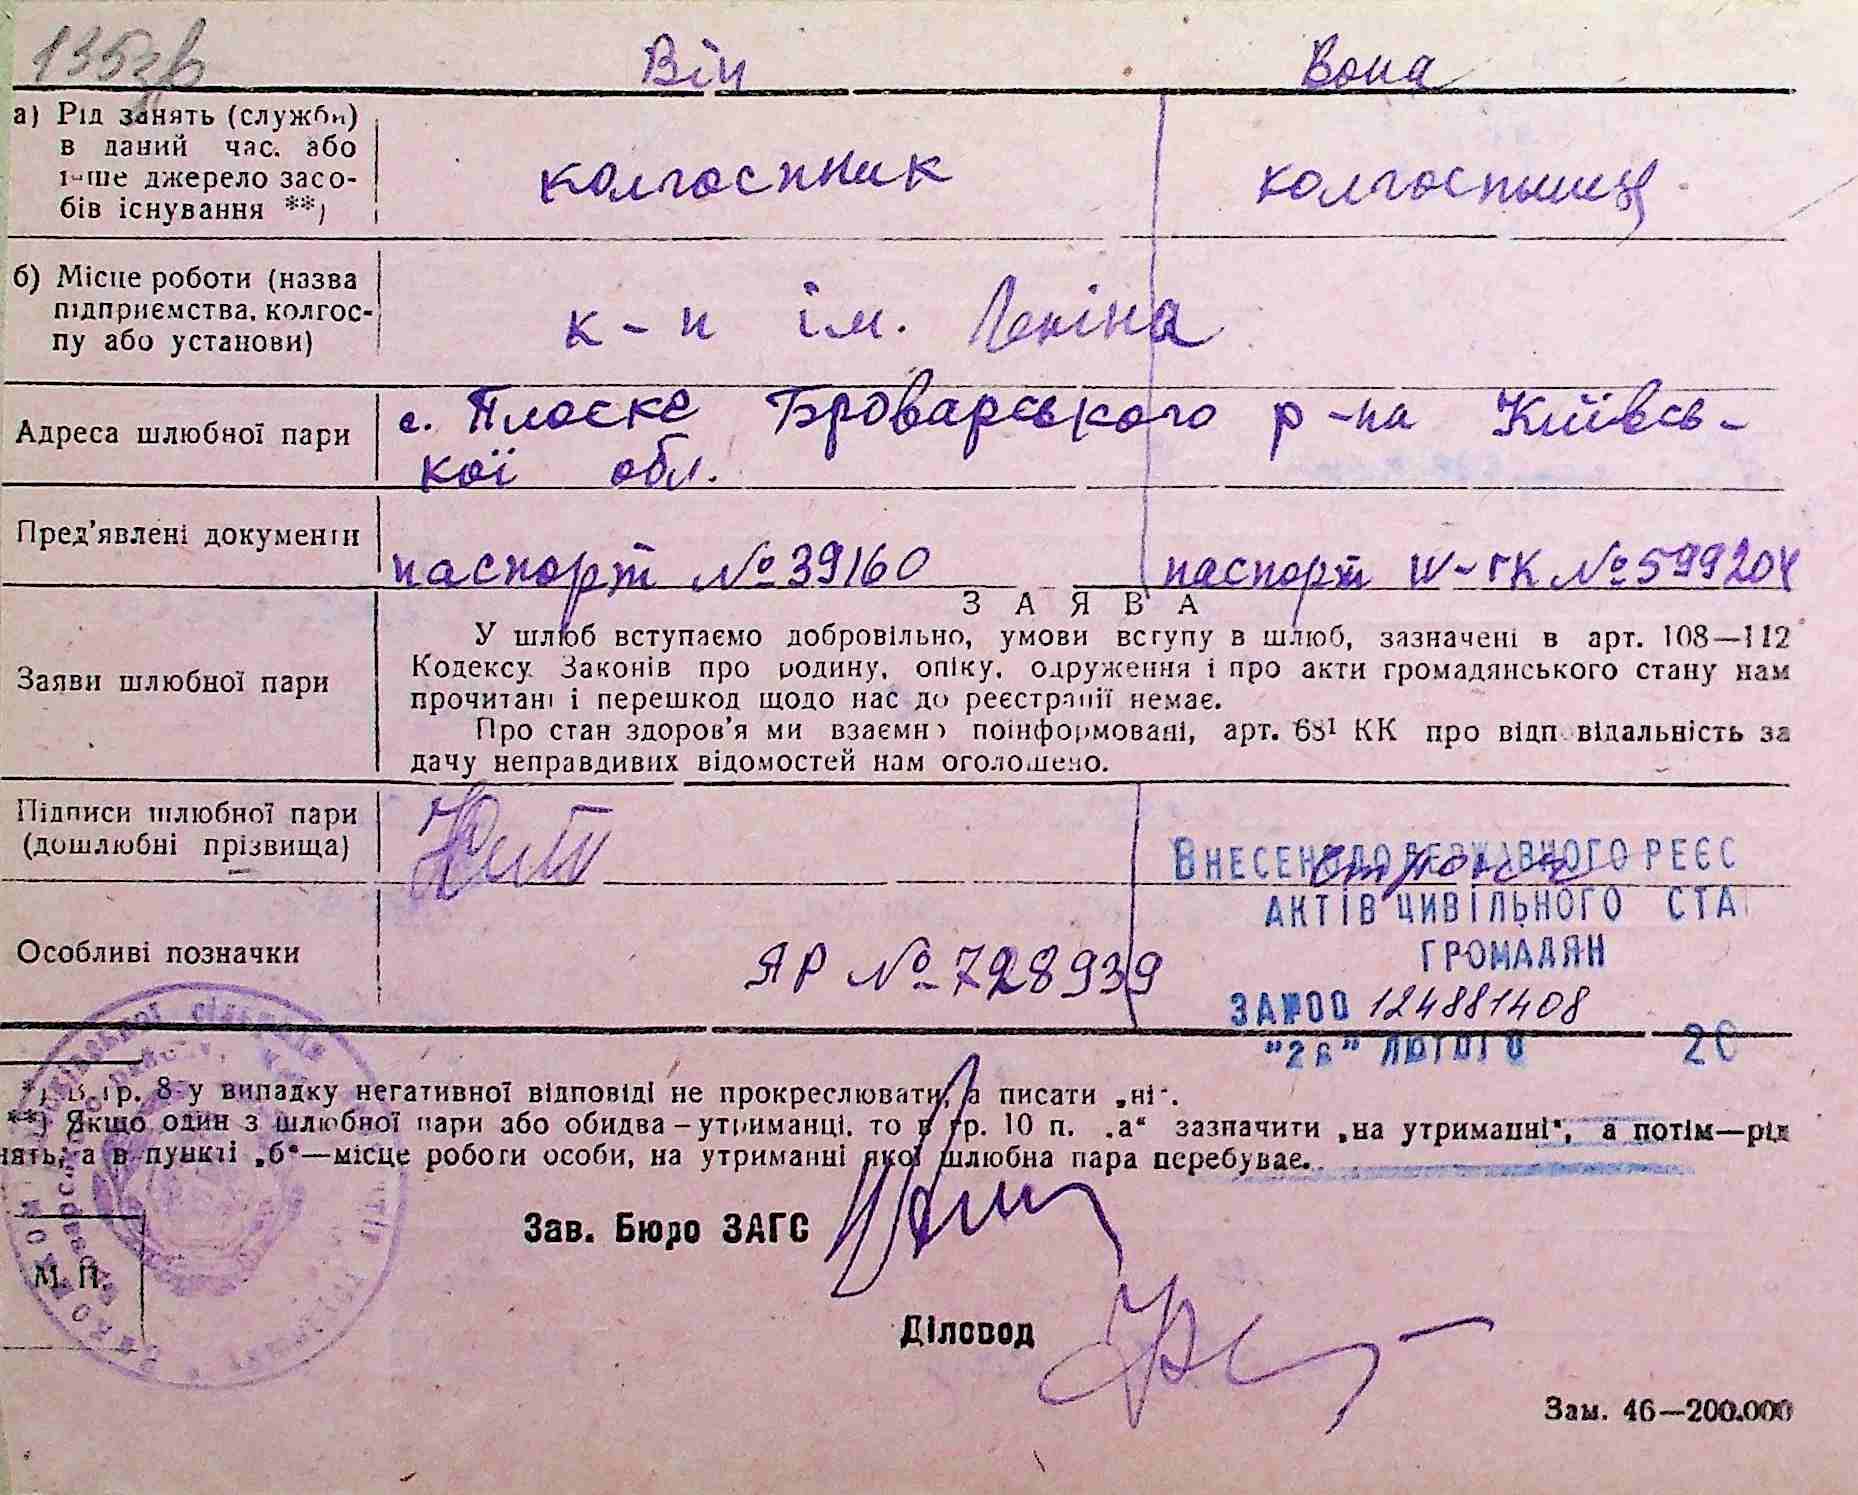 135зв
Він Вона
а) Рід занять (служби)
в даний час. або
інше джерело засо-
бів існування **)
колгоспник колгоспниця
б) Місце роботи (назва
підприємства, колгос-
пу або установи)
к-п ім. Леніна
Адреса шлюбної пари
с. Плоске Броварського р-на Київсь-
кої обл.
Пред'явлені документи
паспорт № 39160 паспорт IV-ГК № 599204
ЗАЯВА
Заяви шлюбної пари
У шлюб вступаємо добровільно, умови вступу в шлюб, зазначені в арт. 108—112
Кодексу Законів про родину, опіку, одруження і про акти громадянського стану нам
прочитані і перешкод щодо нас до реєстрації немає.
Про стан здоров'я ми взаємно поінформовані, арт. 68¹ КК про відповідальність за
дачу неправдивих відомостей нам оголошено.
Підписи шлюбної пари
(дошлюбні прізвища)
ВНЕСЕНО ДО ДЕРЖАВНОГО РЕЄС
АКТІВ ЦИВІЛЬНОГО СТА
ГРОМАДЯН
Особливі позначки
ЯР № 728939
ЗА №00 124881408
"26" ЛЮТОГО 20
*) В гр. 8 у випадку негативної відповіді не прокреслювати, а писати „ні“.
**) Якщо один з шлюбної пари або обидва – утриманці, то в гр. 10 п. „а“ зазначити „на утриманні“, а потім—рід
нять, а в пункті „б“—місце роботи особи, на утриманні якої шлюбна пара перебуває.
Зав. Бюро ЗАГС
М. П.
Діловод
Зам. 46—200.000